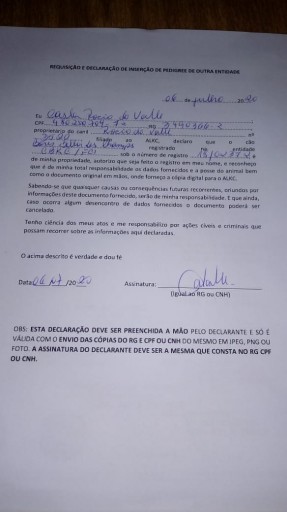 REQUISIÇÃO E DECLARAÇÃO DE INSERÇÃO DE PEDIGREE DE OUTRA ENTIDADE
06 julho 2020
Eu do Valle
CPF RG
proprietário do canil Rocio do Valle nº
filiado ao ALKC, declaro que o cão
registrado na entidade
sob o número de registro
de minha propriedade, autorizo que seja feito o registro em meu nome, e reconheço
que é de minha total responsabilidade os dados fornecidos e a posse do animal bem
como o documento original em mãos, onde forneço a cópia digital para o ALKC.
Sabendo-se que quaisquer causas ou consequências futuras recorrentes, oriundos por
informações deste documento fornecido, serão de minha responsabilidade. E que ainda,
caso ocorra algum desencontro de dados fornecidos o documento poderá ser
cancelado.
Tenho ciência dos meus atos e me responsabilizo por ações cíveis e criminais que
possam recorrer sobre as informações aqui declaradas.
O acima descrito é verdade e dou fé
Data: 06/07/2020 Assinatura:
(Igual ao RG ou CNH)
OBS: ESTA DECLARAÇÃO DEVE SER PREENCHIDA A MÃO PELO DECLARANTE E SÓ É
VÁLIDA COM O ENVIO DAS CÓPIAS DO RG E CPF OU CNH DO MESMO EM JPEG, PNG OU
FOTO. A ASSINATURA DO DECLARANTE DEVE SER A MESMA QUE CONSTA NO RG CPF
OU CNH.